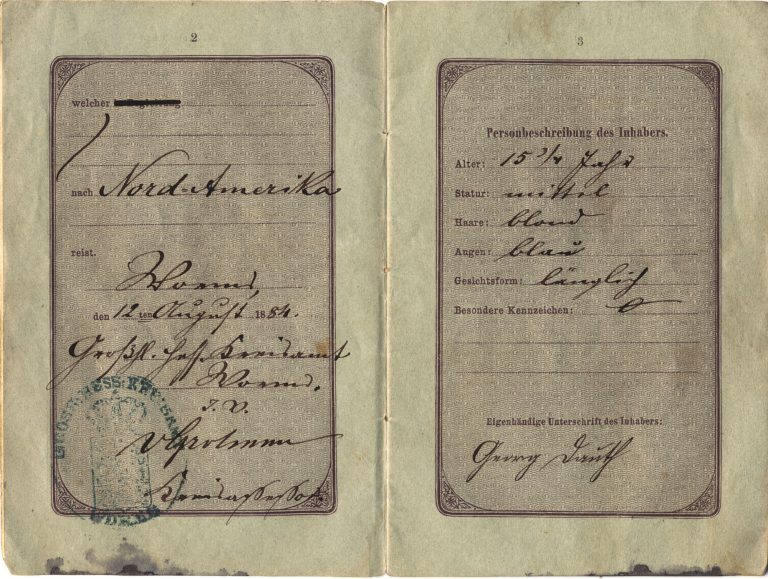 2
welcher in Begleitung
nach Nord-Amerika
reist.
Worms,
den 12 ten August 1884.
Großh. hess. Kreisamt
Worms.
J. V.
Kreisassessor.
GROSH. HESS. KREISAMT
WORMS
3
Personbeschreibung des Inhabers.
Alter: 15 3/4 Jahr
Statur: mittel
Haare: blond
Augen: blau
Gesichtsform: länglich
Besondere Kennzeichen: 0
Eigenhändige Unterschrift des Inhabers:
Georg Dauth